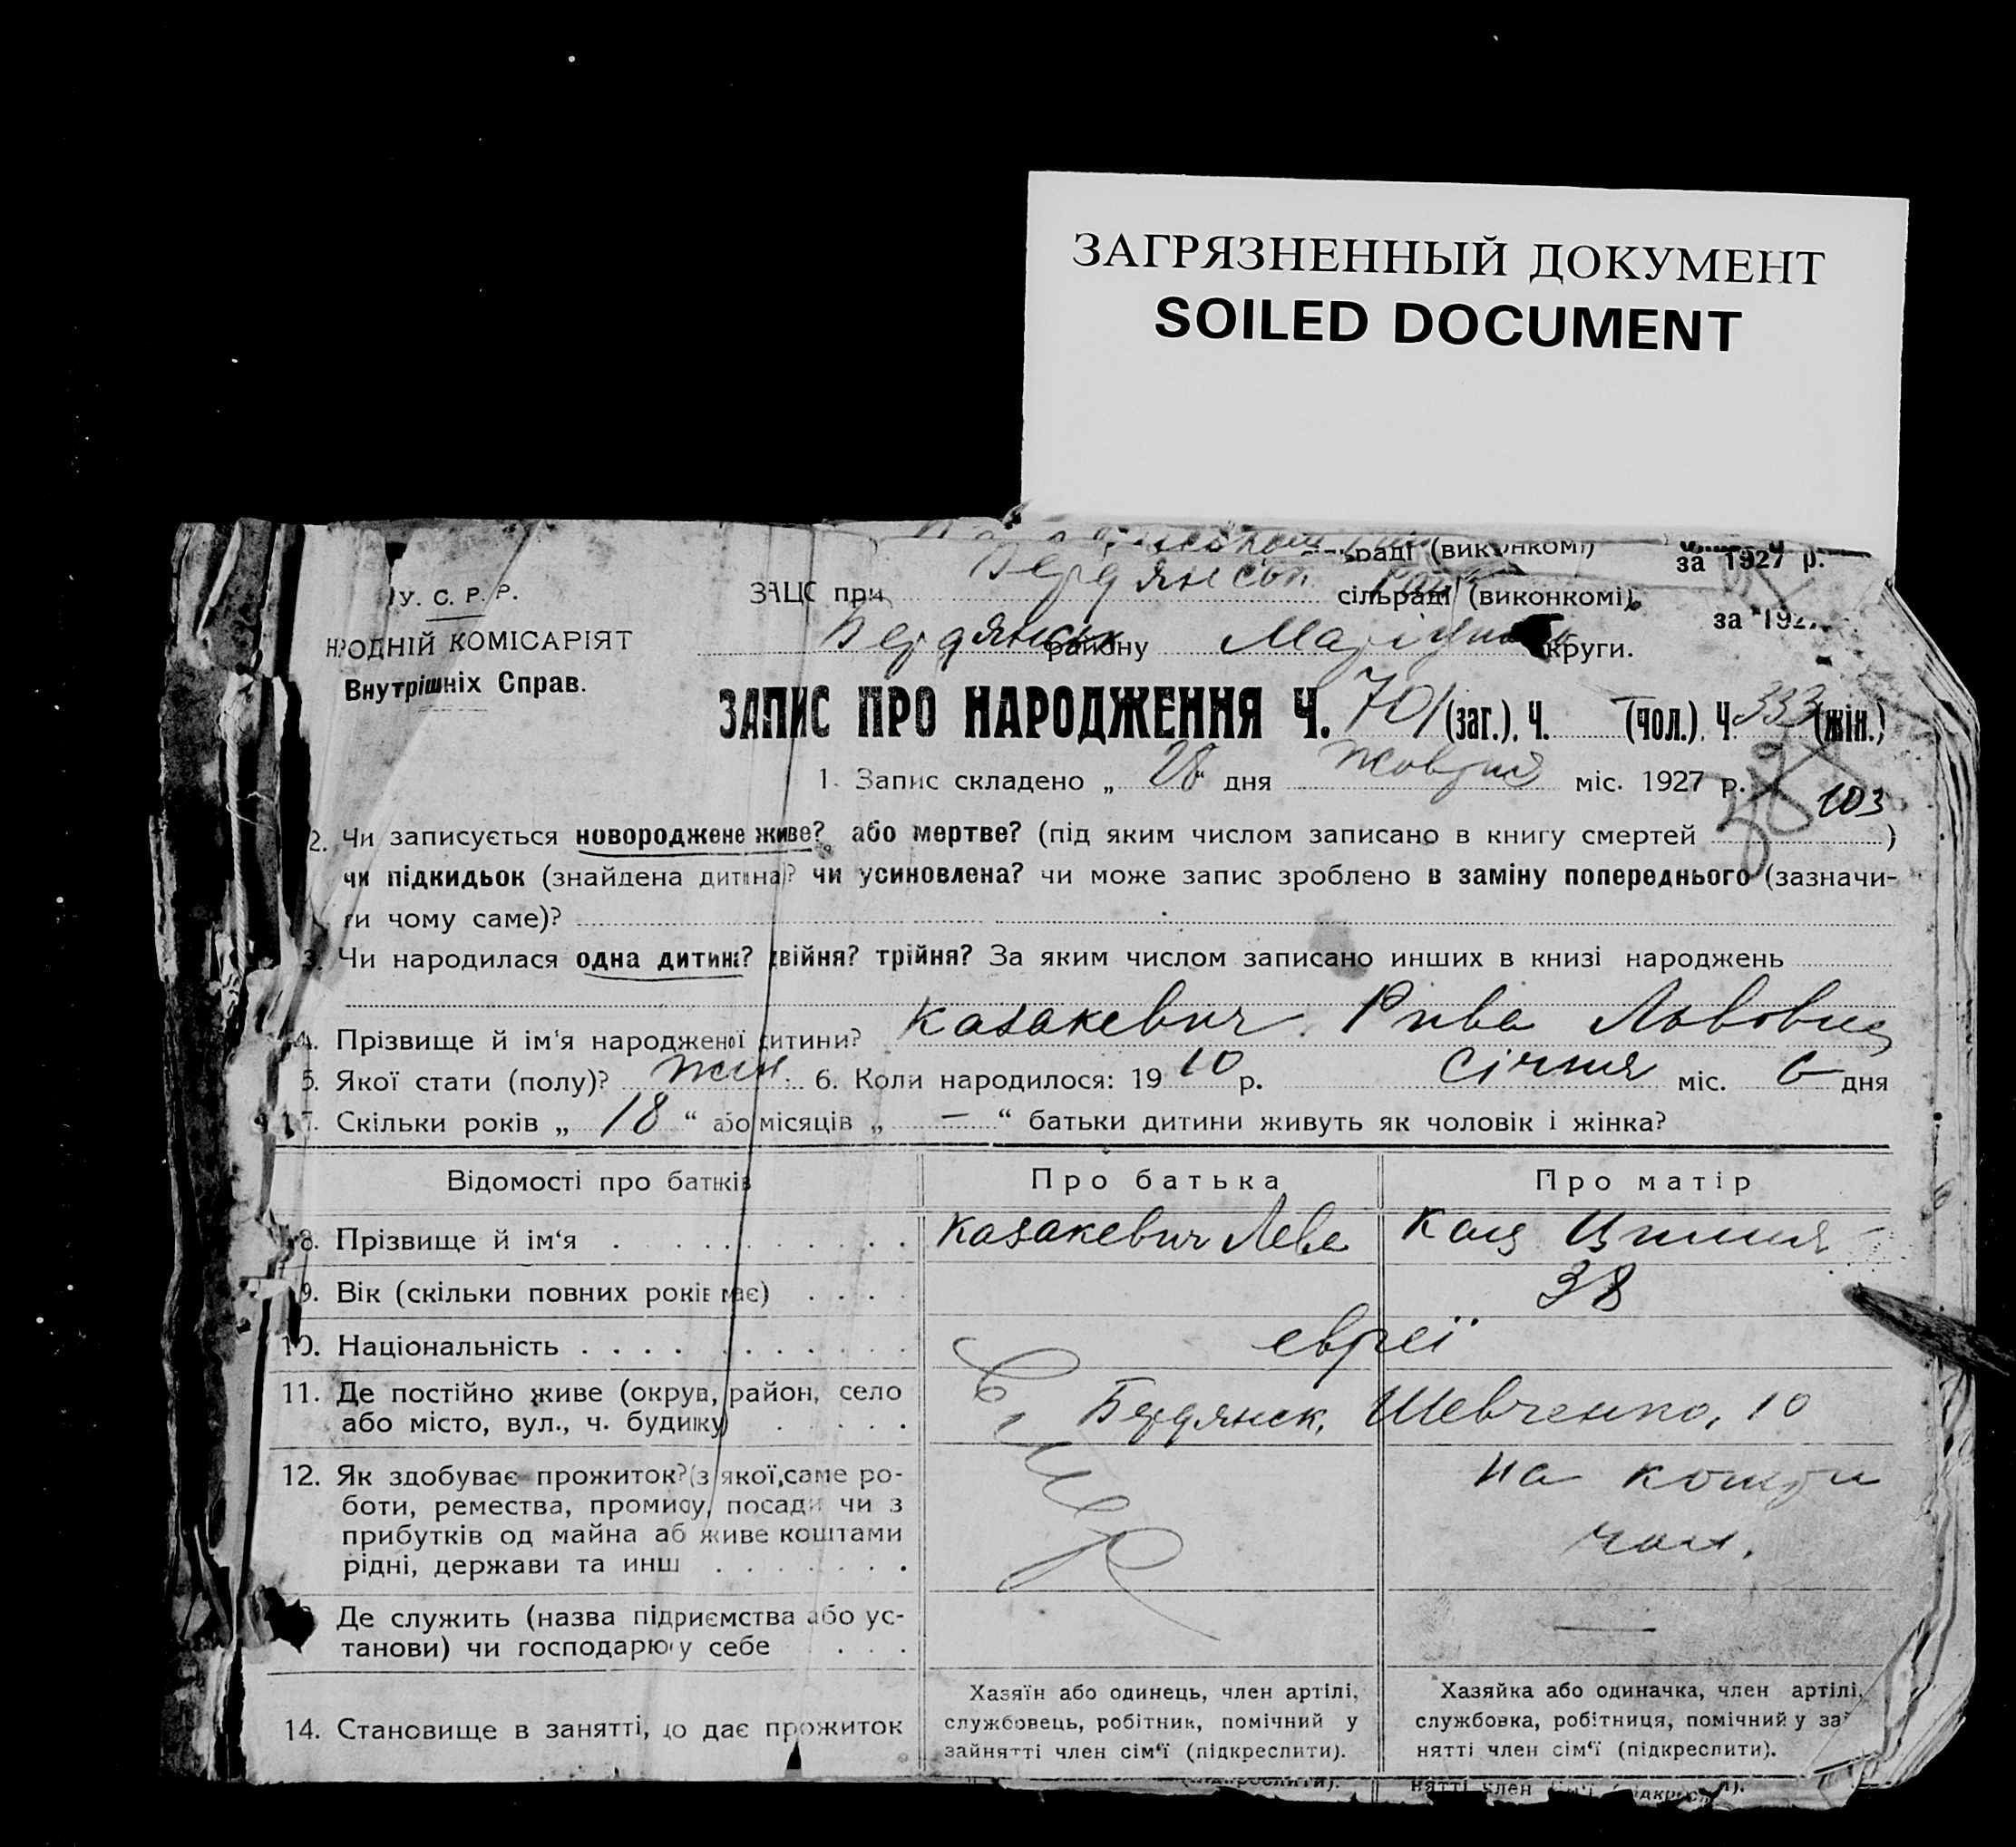 ЗАГРЯЗНЕННЫЙ ДОКУМЕНТ
SOILED DOCUMENT
сільраді (виконкомі)
за 1927 р.
У. С. Р. Р.
ЗАЦС при Бердянськ. сільраді (виконкомі)
за 192
НАРОДНІЙ КОМІСАРІЯТ
Бердянськ району Маріуп округи.
Внутрішніх Справ.
ЗАПИС ПРО НАРОДЖЕННЯ Ч. 701 (заг.), Ч. — (чол.), Ч. 333 (жін.)
1. Запис складено „ 28 “ дня жовтня міс. 1927 р.
103
2. Чи записується новороджене живе? або мертве? (під яким числом записано в книгу смертей )
чи підкидьок (знайдена дитина)? чи усиновлена? чи може запис зроблено в заміну попереднього (зазначи-
ти чому саме)?
3. Чи народилася одна дитина? двійня? трійня? За яким числом записано инших в книзі народжень
4. Прізвище й ім‘я народженої дитини? Казакевич Рива Львовна
5. Якої стати (полу)? жін. 6. Коли народилося: 1910 р. Січня міс. 6 дня
7. Скільки років „ 18 “ або місяців „ — “ батьки дитини живуть як чоловік і жінка?
Відомості про батьків Про батька Про матір
8. Прізвище й ім‘я Казакевич Лева Кац
9. Вік (скільки повних років має) 38
10. Національність евреї
11. Де постійно живе (округ, район, село
або місто, вул., ч. будинку) Бердянск, Шевченко, 10
12. Як здобуває прожиток? (з якої саме ро-
боти, ремества, промислу, посади чи з
прибутків од майна або живе коштами
рідні, держави та инш
на кошти
чол.
Де служить (назва підприємства або ус-
танови) чи господарює у себе
—
14. Становище в занятті, що дає прожиток
Хазяїн або одинець, член артілі,
службовець, робітник, помічний у
зайнятті член сім‘ї (підкреслити).
Хазяйка або одиначка, член артілі,
службовка, робітниця, помічний у за
нятті член сім‘ї (підкреслити).